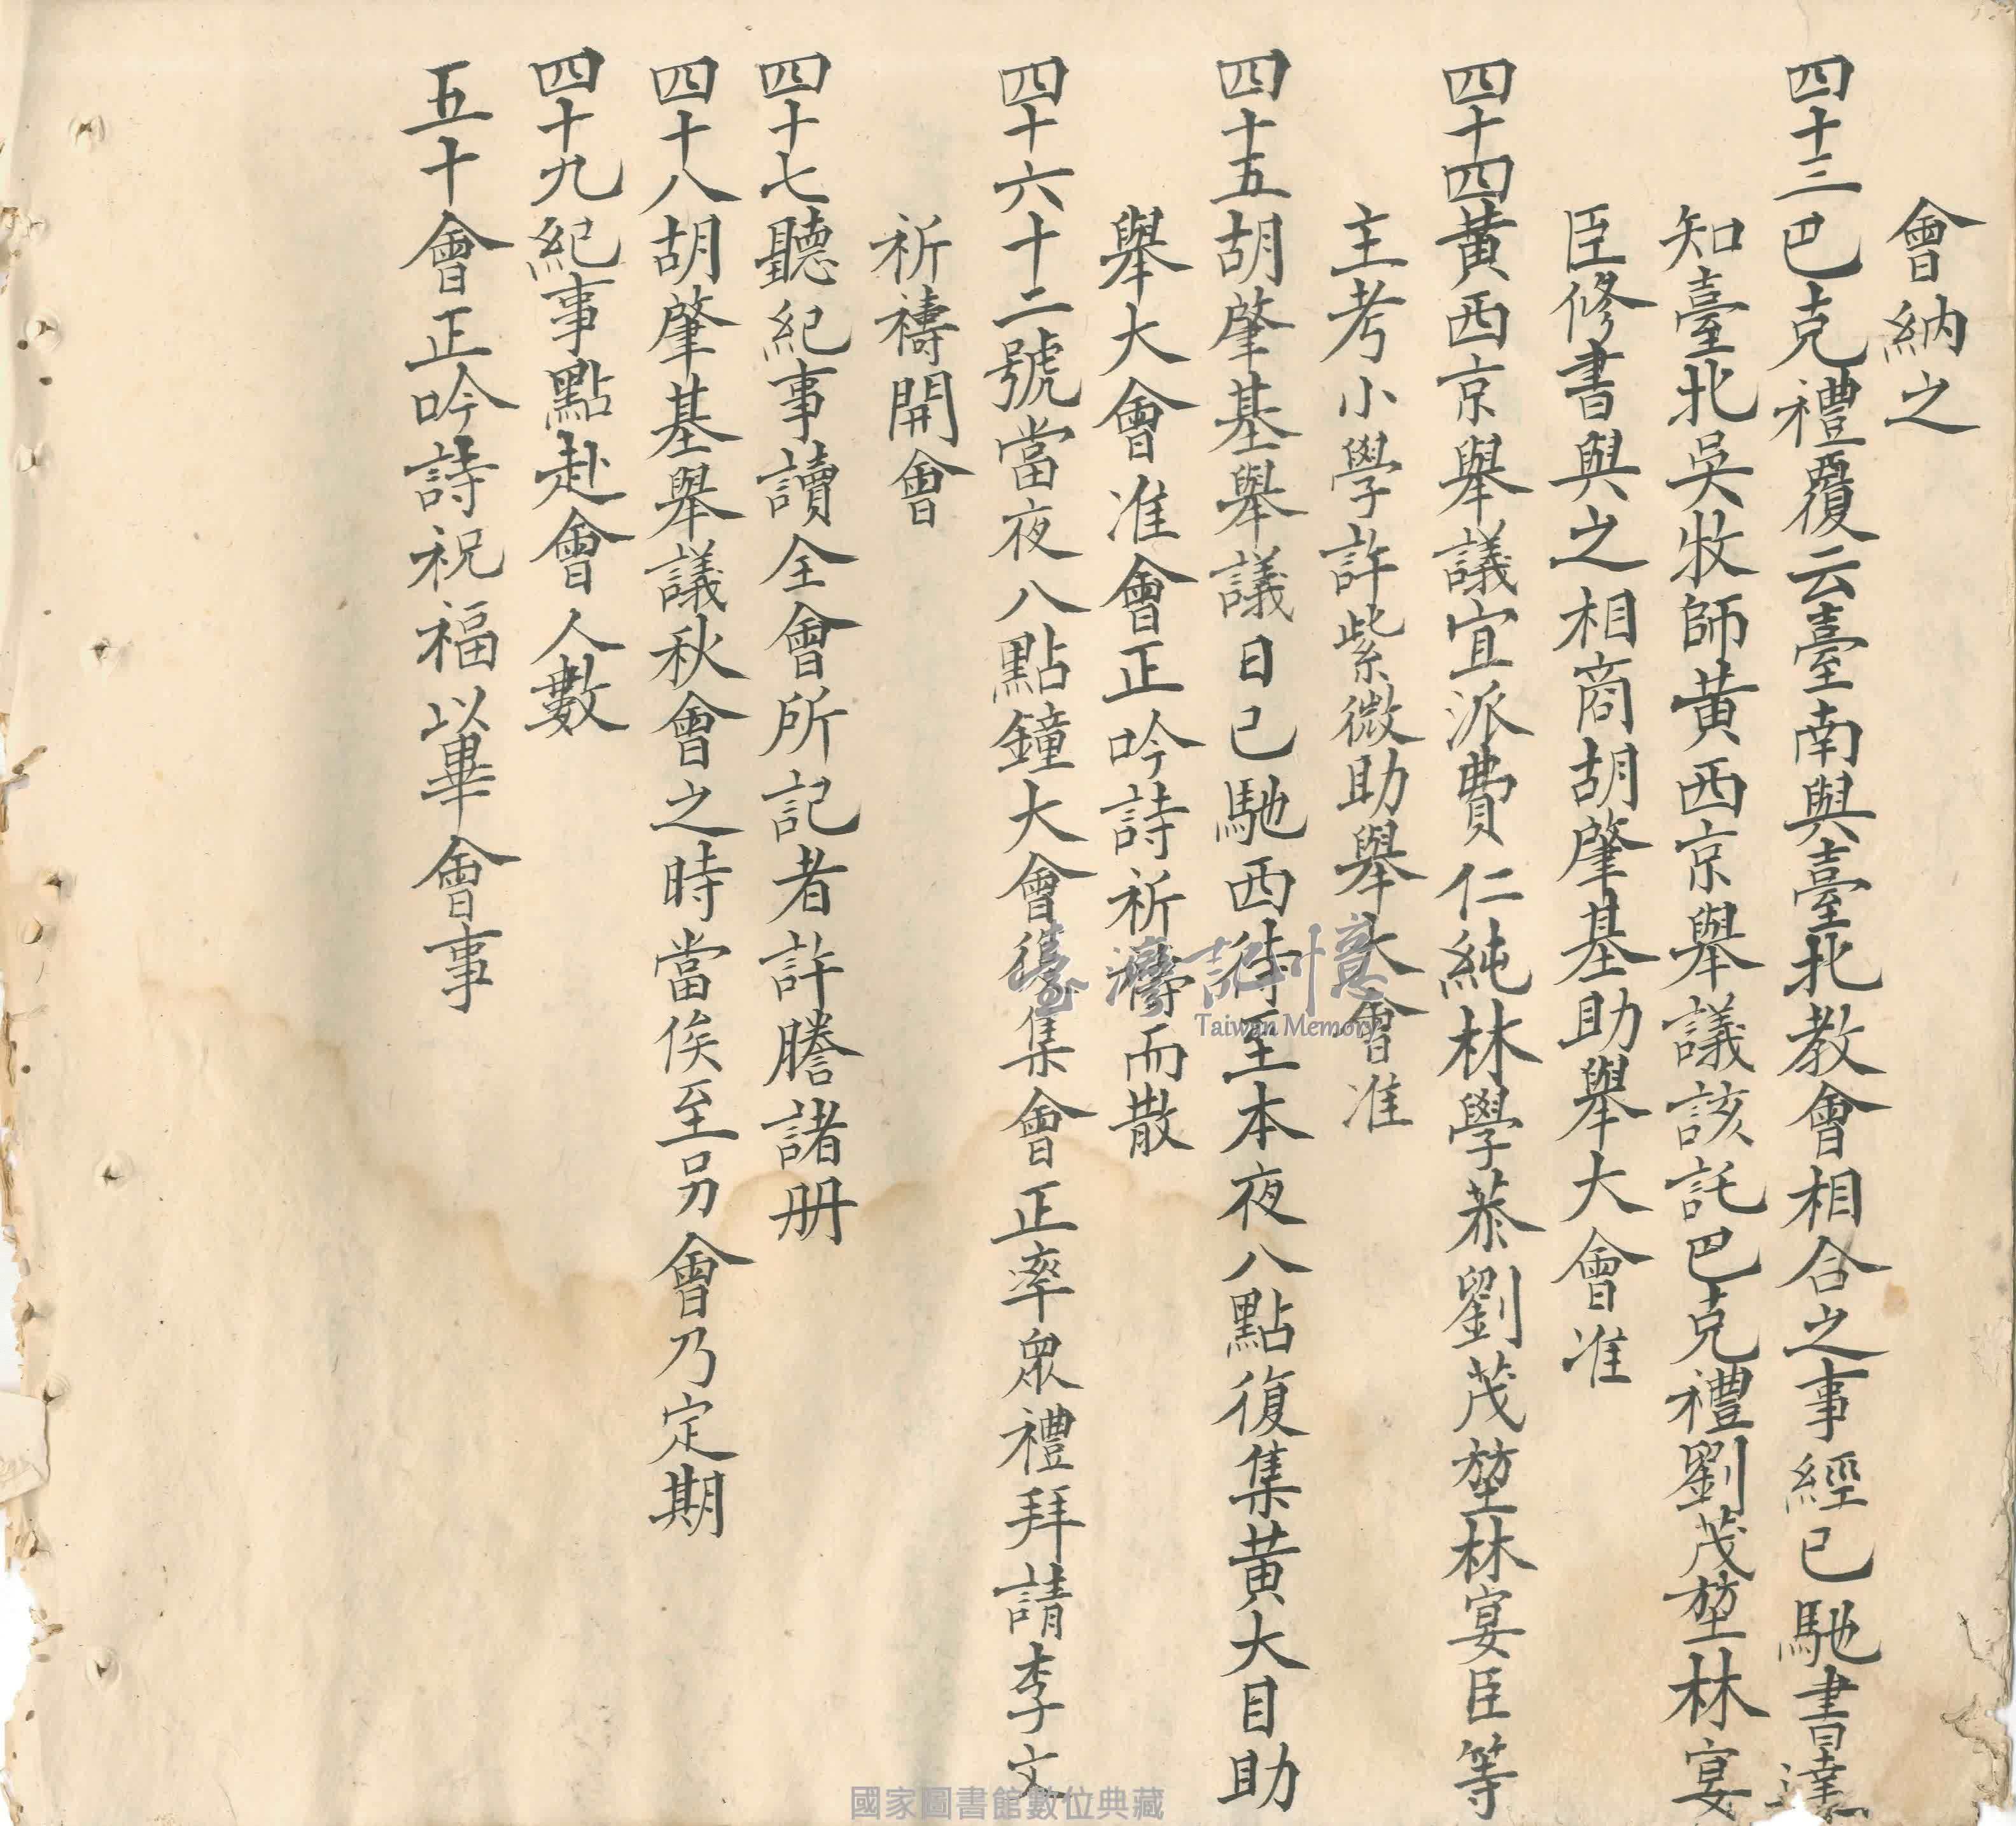 會納之
四十三巴克禮覆云臺南與臺北教會相合之事經已馳書達
知臺北吳牧師黃西京舉議該託巴克禮劉茂堃林宴
臣修書與之相商胡肇基助舉大會准
四十四黃西京舉議宜派費仁純林學恭劉茂堃林宴臣等
主考小學許紫微助舉大會准
四十五胡肇基舉議日已馳西待至本夜八點復集黃大目助
舉大會准會正吟詩祈禱而散
四十六十二號當夜八點鐘大會復集會正率眾禮拜請李文
祈禱開會
四十七聽紀事讀全會所記者許謄諸册
四十八胡肇基舉議秋會之時當俟至另會乃定期
四十九紀事點赴會人數
五十會正吟詩祝福以畢會事
臺灣記憶
Taiwan Memory
國家圖書館數位典藏